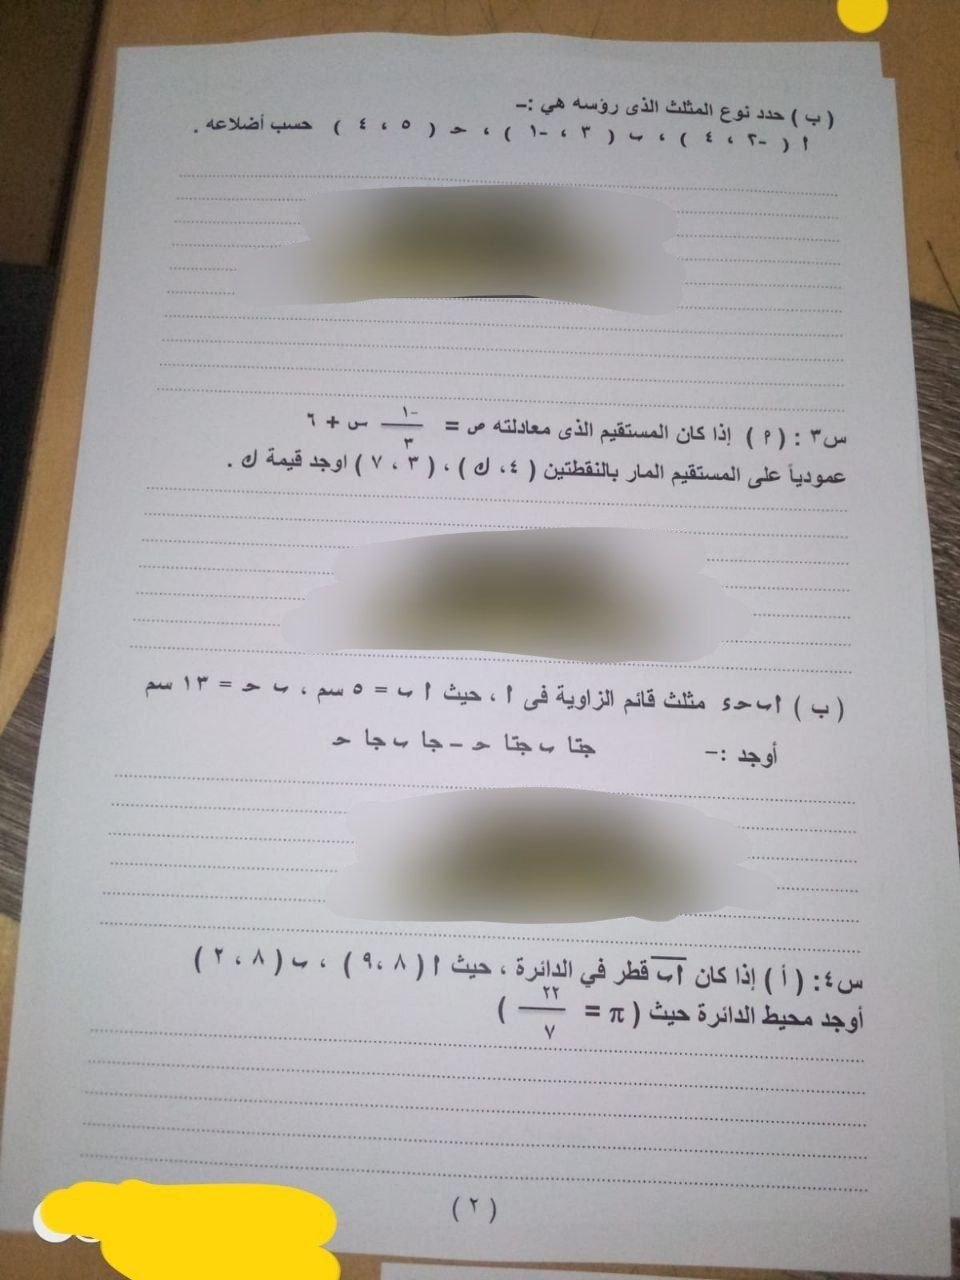 ( ب ) حدد نوع المثلث الذى رؤسه هي :-
أ ( -٢ ، ٤ ) ، ب ( ٣ ، -١ ) ، حـ ( ٥ ، ٤ ) حسب أضلاعه .
س٣ : ( م ) إذا كان المستقيم الذى معادلته ص = -١/٣ س + ٦
عمودياً على المستقيم المار بالنقطتين ( ٤ ، ك ) ، ( ٣ ، ٧ ) اوجد قيمة ك .
( ب ) أ ب حـ ء مثلث قائم الزاوية فى أ ، حيث أ ب = ٥ سم ، ب حـ = ١٣ سم
أوجد :- جتا ب جتا حـ – جا ب جا حـ
س٤: ( أ ) إذا كان أب قطر في الدائرة ، حيث أ ( ٨ ، ٩ ) ، ب ( ٨ ، ٢ )
أوجد محيط الدائرة حيث ( π = ٢٢/٧ )
( ٢ )